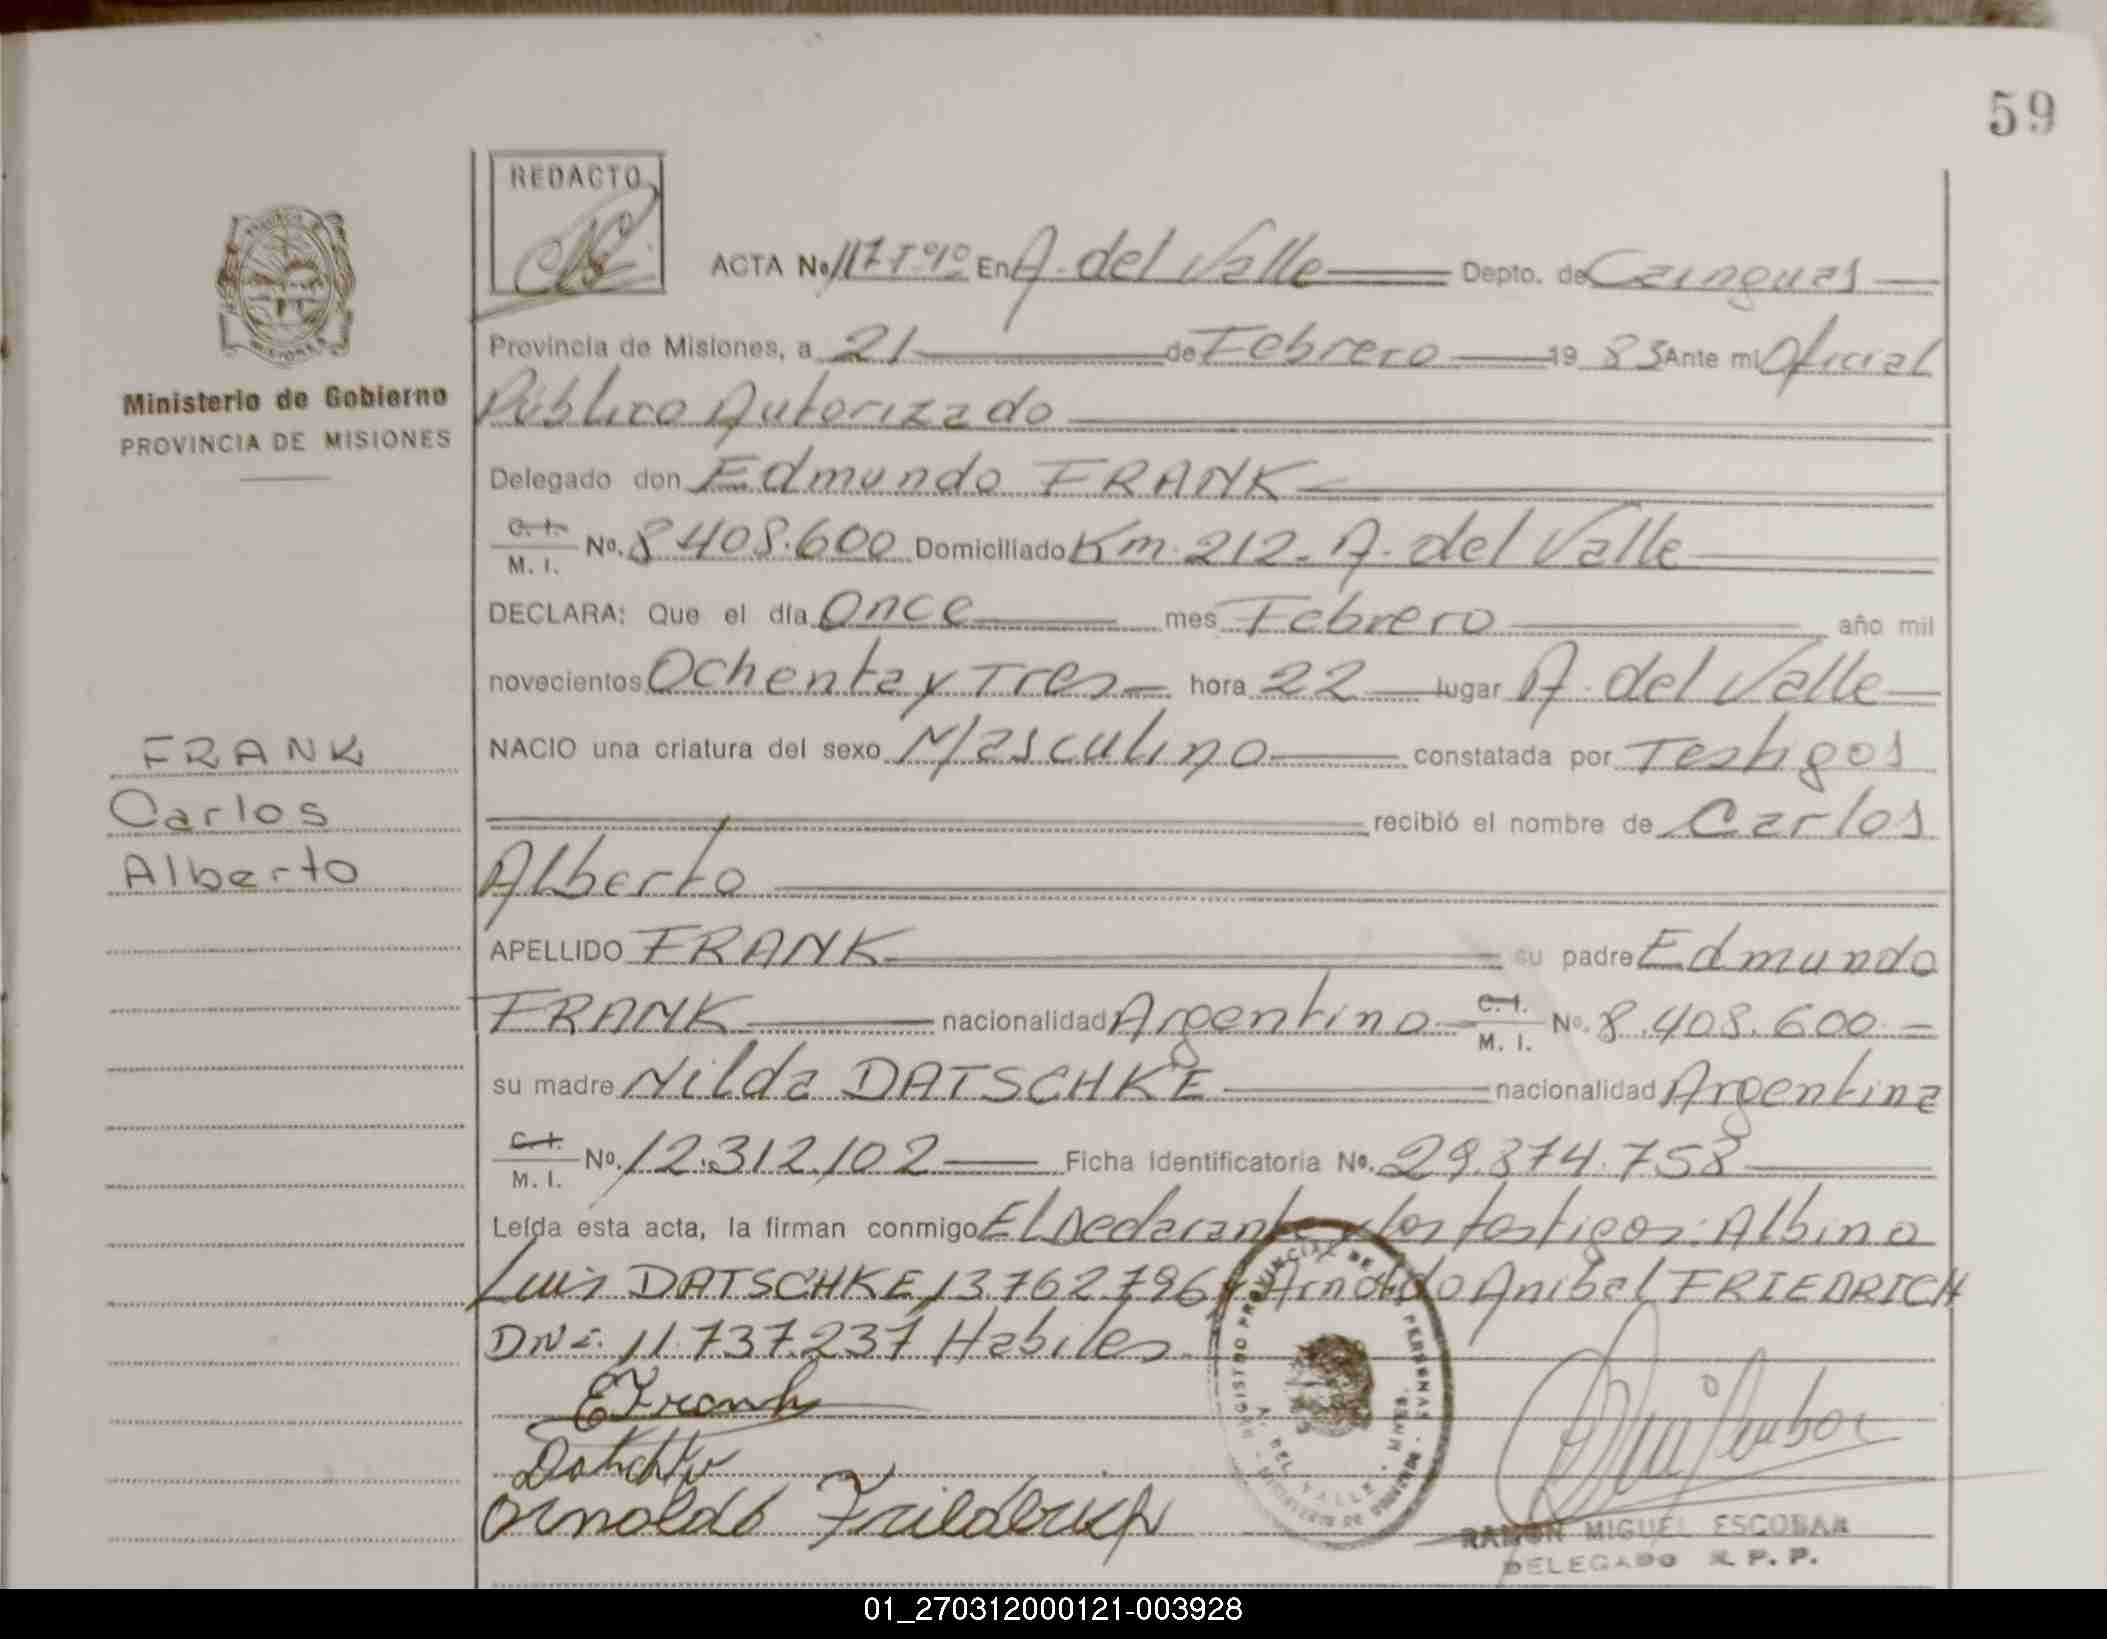 59
REDACTO
ACTA No. 117 Tº1º En A. del Valle Depto. de Cainguas
Provincia de Misiones, a 21 de Febrero 19 83 Ante mi Oficial
Público Autorizado
Ministerio de Gobierno
PROVINCIA DE MISIONES
Delegado don Edmundo FRANK
C. I.
M. I. No. 8.408.600 Domiciliado Km. 212. A. del Valle
DECLARA: Que el día Once mes Febrero año mil
novecientos Ochenta y Tres hora 22 lugar A. del Valle
NACIO una criatura del sexo Masculino constatada por Testigos
FRANK
Carlos
Alberto
recibió el nombre de Carlos
Alberto
APELLIDO FRANK su padre Edmundo
FRANK nacionalidad Argentino C. I.
M. I. No. 8.408.600
su madre Nilda DATSCHKE nacionalidad Argentina
C. I.
M. I. No. 12.312.102 Ficha Identificatoria No. 29.874.758
Leída esta acta, la firman conmigo El Declarante y los testigos: Albino
Luis DATSCHKE 13.762.796 y Arnoldo Anibal FRIEDRICH
DNI. 11.737.237 Habiles
EFrank
Arnoldo Friedrich
REGISTRO PROVINCIAL DE LAS PERSONAS
A. DEL VALLE
RAMON MIGUEL ESCOBAR
DELEGADO R. P. P.
01_270312000121-003928